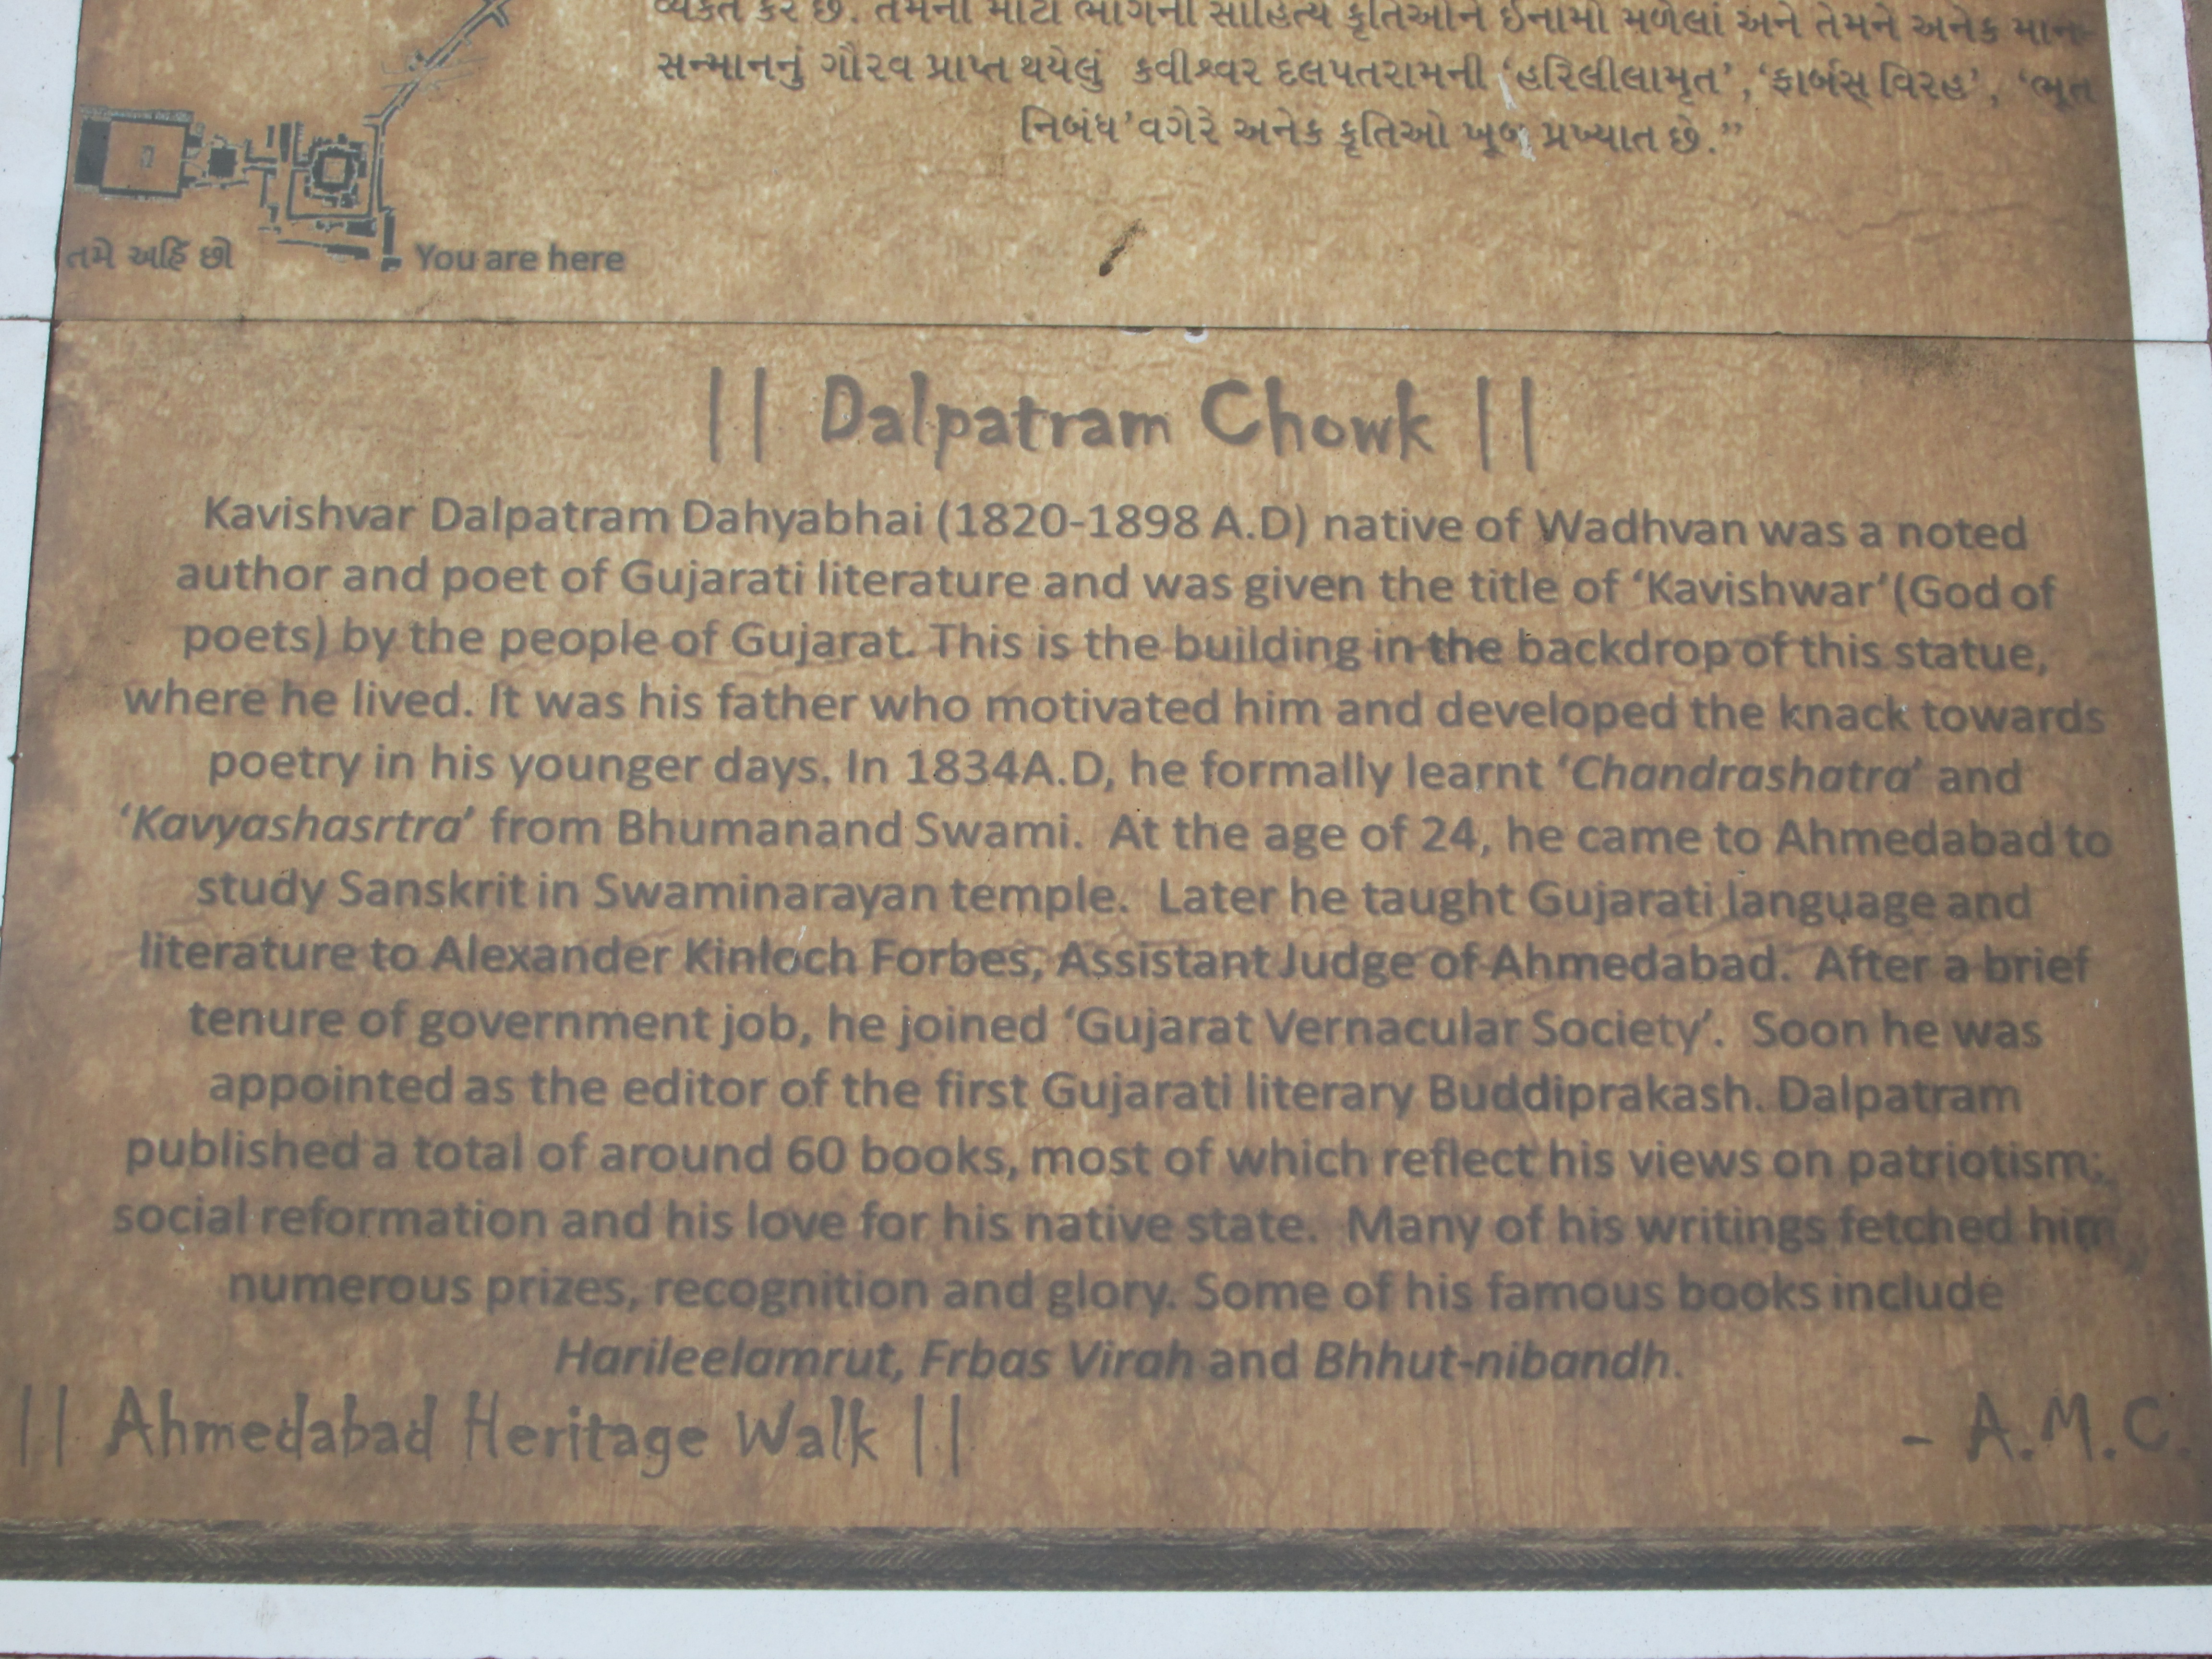 વ્યકત કરે છે. તેમની મોટા ભાગની સાહિત્ય કૃતિઓને ઈનામો મળેલાં અને તેમને અનેક માન-
સન્માનનું ગૌરવ પ્રાપ્ત થયેલું કવીશ્વર દલપતરામની ‘હરિલીલામૃત’, ‘ફાર્બસ્ વિરહ’, ‘ભૂત
નિબંધ’ વગેરે અનેક કૃતિઓ ખૂબ પ્રખ્યાત છે.”
તમે અહિં છો You are here
|| Dalpatram Chowk ||
Kavishvar Dalpatram Dahyabhai (1820-1898 A.D) native of Wadhvan was a noted
author and poet of Gujarati literature and was given the title of ‘Kavishwar’(God of
poets) by the people of Gujarat. This is the building in the backdrop of this statue,
where he lived. It was his father who motivated him and developed the knack towards
poetry in his younger days. In 1834A.D, he formally learnt ‘Chandrashatra’ and
‘Kavyashasrtra’ from Bhumanand Swami. At the age of 24, he came to Ahmedabad to
study Sanskrit in Swaminarayan temple. Later he taught Gujarati language and
literature to Alexander Kinloch Forbes, Assistant Judge of Ahmedabad. After a brief
tenure of government job, he joined ‘Gujarat Vernacular Society’. Soon he was
appointed as the editor of the first Gujarati literary Buddiprakash. Dalpatram
published a total of around 60 books, most of which reflect his views on patriotism;
social reformation and his love for his native state. Many of his writings fetched him
numerous prizes, recognition and glory. Some of his famous books include
Harileelamrut, Frbas Virah and Bhhut-nibandh.
|| Ahmedabad Heritage Walk || - A.M.C.